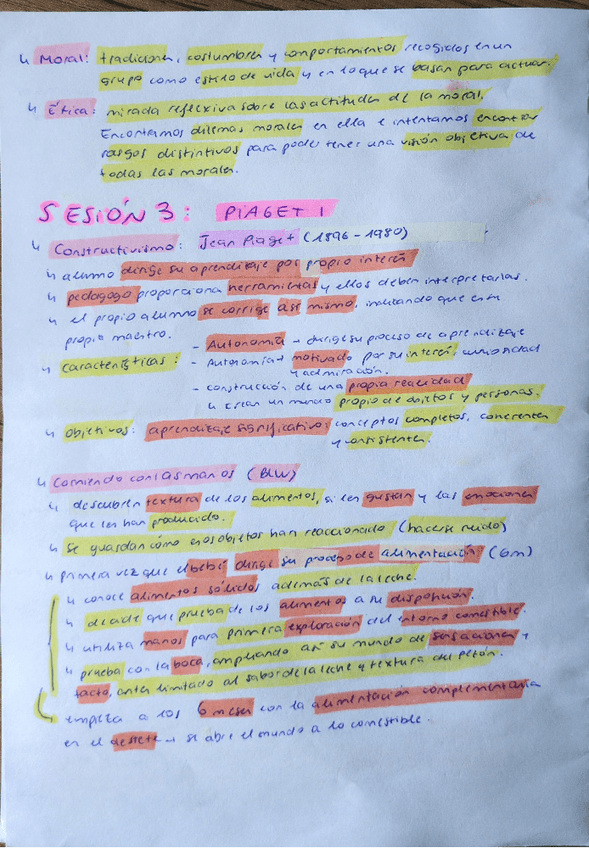 ↳ Moral: tradiciones, costumbres y comportamientos recogidos en un
grupo como estilo de vida y en lo que se basan para actuar.
↳ Ética: mirada reflexiva sobre las actitudes de la moral.
Encontramos dilemas morales en ella e intentamos encontrar
rasgos distintivos para poder tener una visión objetiva de
todas las morales.
SESIÓN 3: PIAGET I
↳ Constructivismo: Jean Piaget (1896-1980)
↳ alumno dirige su aprendizaje por propio interés
↳ pedagogo proporciona herramientas y ellos deben interpretarlas.
↳ el propio alumno se corrige a sí mismo, indicando que es su
propio maestro.
↳ características: - Autonomía → dirige su proceso de aprendizaje
- Autonomía → motivado por su interés, curiosidad
y admiración.
- construcción de una propia realidad
↳ crean un mundo propio de objetos y personas.
↳ Objetivos: aprendizaje significativo: conceptos completos, coherentes
y consistentes.
↳ Comiendo con las manos (BLW)
↳ descubren textura de los alimentos, si les gustan y las emociones
que les han producido.
↳ se guardan cómo esos objetos han reaccionado (hacerse ruido)
↳ primera vez que el bebé dirige su proceso de alimentación (6m)
↳ conoce alimentos sólidos además de la leche.
↳ decide que prueba de los alimentos a su disposición.
↳ utiliza manos para primera exploración del entorno comestible.
↳ prueba con la boca, ampliando así su mundo de sensaciones y
tacto, antes limitado al sabor de la leche y textura del pezón.
empieza a los 6 meses con la alimentación complementaria
en el destete → se abre el mundo a lo comestible.